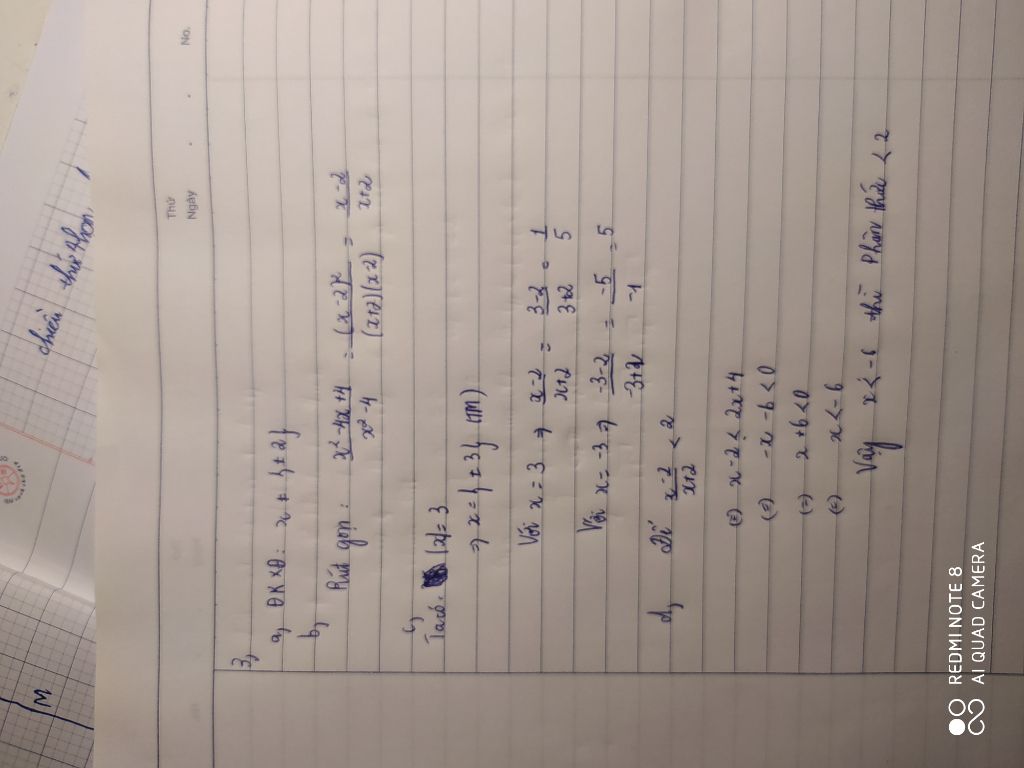 chiều thứ
M
Thứ
Ngày
No.
3,
a, ĐKXĐ: x ≠ {±2}
b,
Rút gọn: x²-4x+4 / x²-4 = (x-2)² / (x+2)(x-2) = x-2 / x+2
c,
Ta có: |x| = 3
=> x = {±3} (TM)
Với x = 3 => x-2 / x+2 = 3-2 / 3+2 = 1 / 5
Với x = -3 => -3-2 / -3+2 = -5 / -1 = 5
d, Để x-2 / x+2 < 2
(=) x-2 < 2x+4
(=) -x-6 < 0
(=) x+6 < 0
(=) x < -6
Vậy x < -6 thì phân thức < 2
REDMI NOTE 8
AI QUAD CAMERA